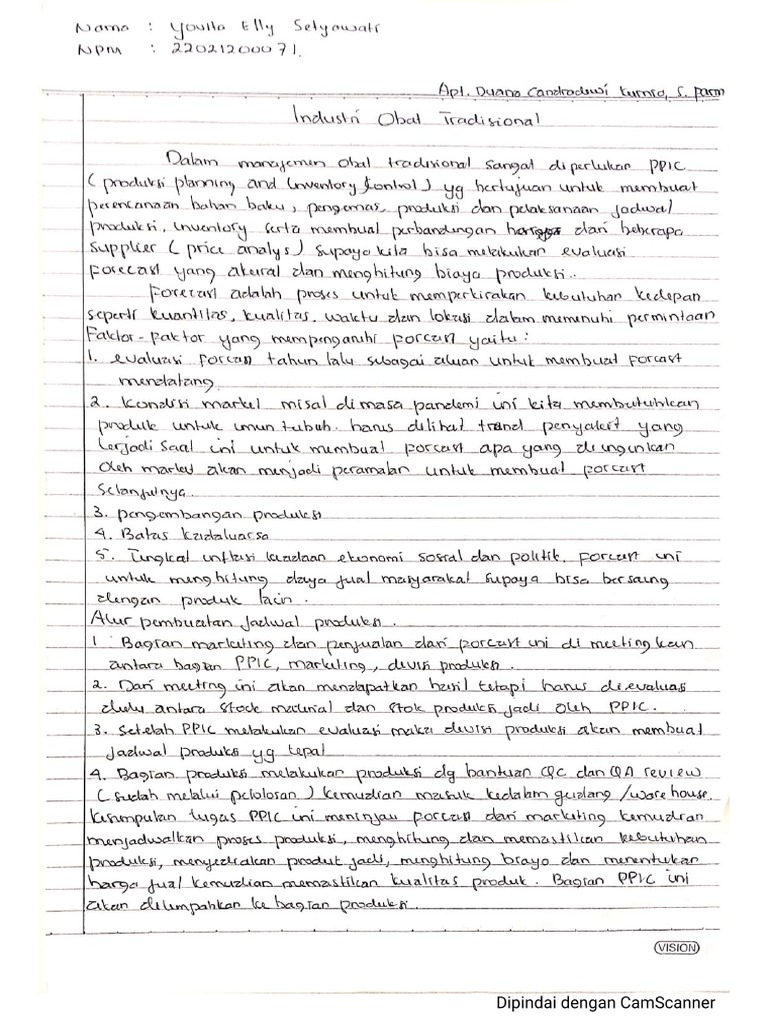 Nama : Yovita Elly Setyawati
NPM : 22021200071.
Apt. Duana Candradewi Kurnia, S. Farm
Industri Obat Tradisional
Dalam manajemen obat tradisional sangat diperlukan PPIC
(produksi planning and Inventory Control) yg bertujuan untuk membuat
perencanaan bahan baku, pengemas, produksi dan pelaksanaan jadwal
produksi, inventory serta membuat perbandingan dari beberapa
supplier (price analys) supaya kita bisa melakukan evaluasi
forecast yang akurat dan menghitung biaya produksi..
Forecast adalah proses untuk memperkirakan kebutuhan kedepan
seperti kuantitas, kualitas, waktu dan lokasi dalam memenuhi permintaan
Faktor-faktor yang mempengaruhi forcast yaitu :
1. evaluasi forcast tahun lalu sebagai acuan untuk membuat forcast
mendatang.
2. Kondisi market misal dimasa pandemi ini kita membutuhkan
produk untuk imun tubuh. harus dilihat trand penyakit yang
terjadi saat ini untuk membuat forcast apa yang diinginkan
oleh market akan menjadi peramalan untuk membuat forcast
selanjutnya.
3. pengembangan produksi
4. Batas kadaluarsa
5. Tingkat inflasi keadaan ekonomi sosial dan politik. forcast ini
untuk menghitung daya jual masyarakat supaya bisa bersaing
dengan produk lain.
Alur pembuatan jadwal produksi.
1 Bagian marketing dan penjualan dari forcast ini di meetingkan
antara bagian PPIC, marketing, divisi produksi.
2. Dari meeting ini akan mendapatkan hasil tetapi harus dievaluasi
dulu antara stock material dan stok produksi jadi oleh PPIC.
3. Setelah PPIC melakukan evaluasi maka divisi produksi akan membuat
jadwal produksi yg tepat
4. Bagian produksi melakukan produksi dg bantuan QC dan QA review
(sudah melalui pelolosan) kemudian masuk kedalam gudang /ware house.
kesimpulan tugas PPIC ini meninjau forcast dari marketing kemudian
menjadwalkan proses produksi, menghitung dan memastikan kebutuhan
produksi, menyediakan produk jadi, menghitung biaya dan menentukan
harga jual kemudian memastikan kualitas produk. Bagian PPIC ini
akan dilimpahkan ke bagian produksi.
VISION
Dipindai dengan CamScanner